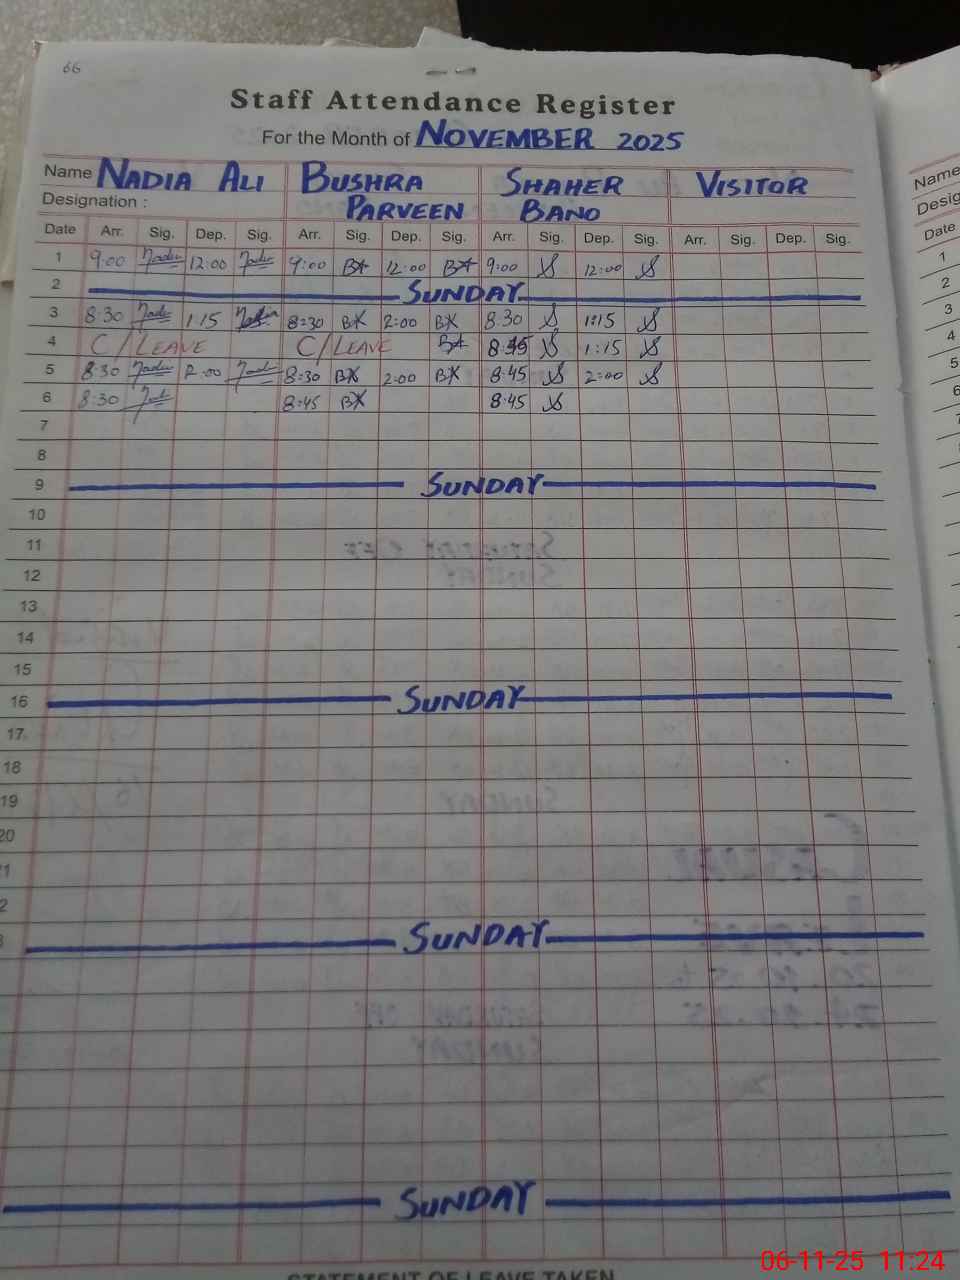 66
Staff Attendance Register
For the Month of NOVEMBER 2025
Name NADIA ALI BUSHRA PARVEEN SHAHER BANO VISITOR
Designation :
Date Arr. Sig. Dep. Sig. Arr. Sig. Dep. Sig. Arr. Sig. Dep. Sig. Arr. Sig. Dep. Sig.
1 9:00 Nadia 12:00 Nadia 9:00 12:00 9:00 12:00
2 SUNDAY
3 8:30 Nadia 1:15 Nadia 8:30 2:00 8:30 1:15
4 C/LEAVE C/LEAVE 8:45 1:15
5 8:30 Nadia 2:00 Nadia 8:30 2:00 8:45 2:00
6 8:30 8:45 8:45
7
8
9 SUNDAY
10
11
12
13
14
15
16 SUNDAY
17
18
19
20
SUNDAY
SUNDAY
STATEMENT OF LEAVE TAKEN
Name
Date
1
2
3
4
5
6
06-11-25 11:24